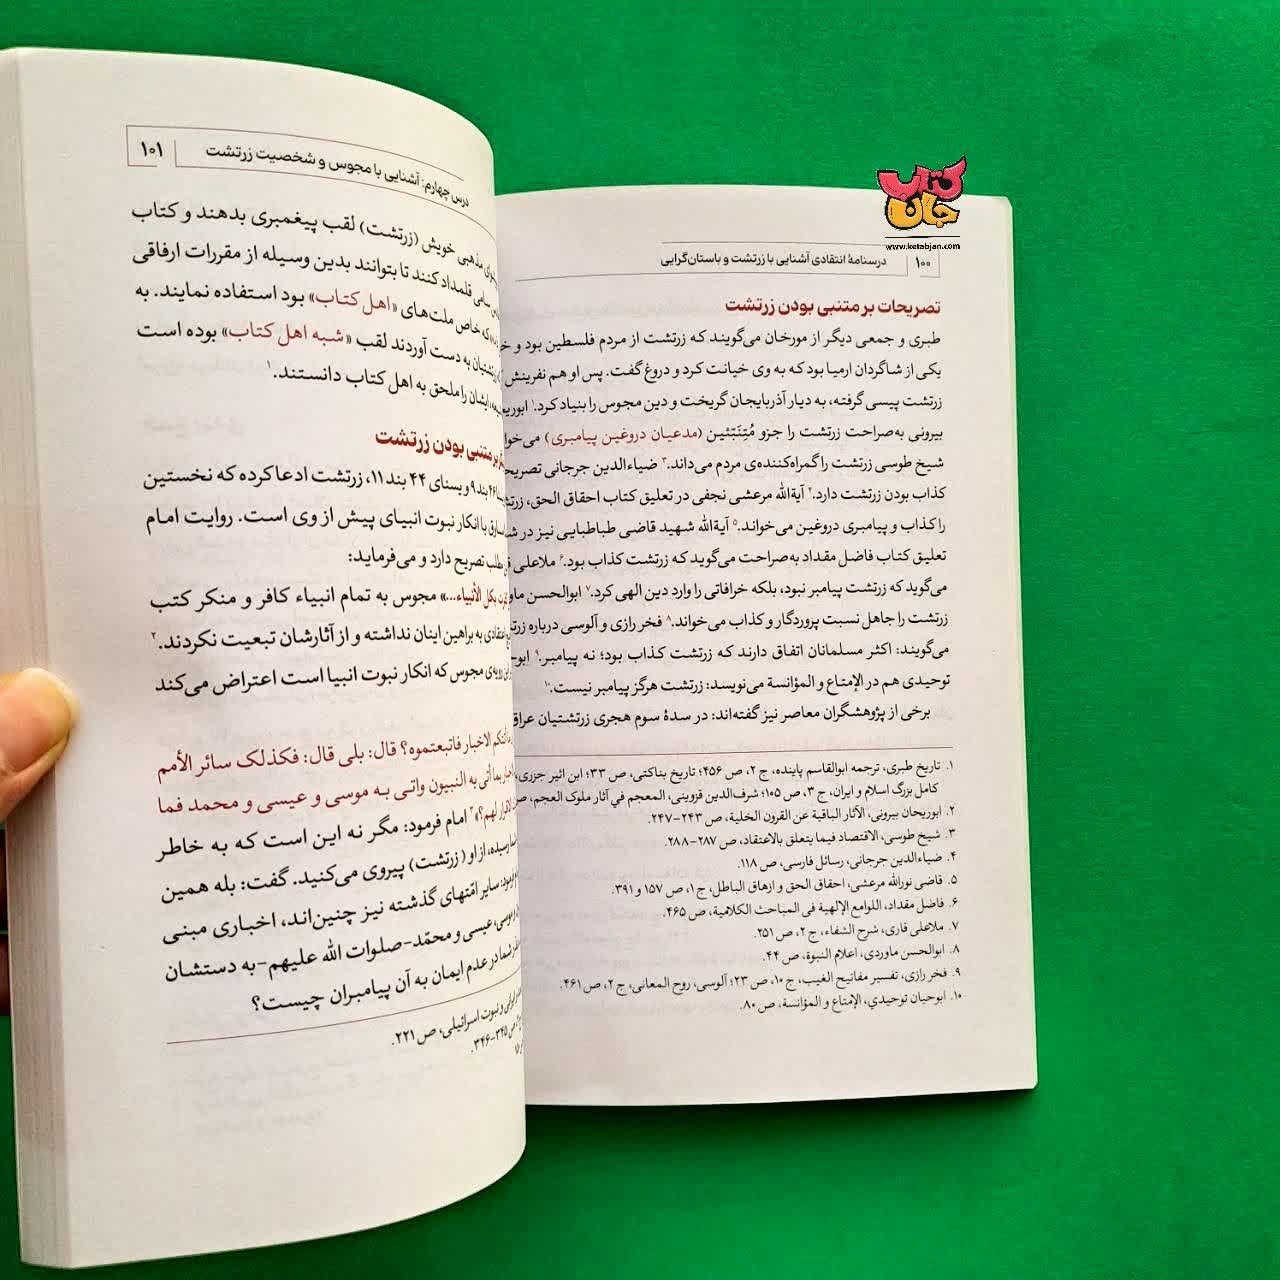 کتاب
جان
www.ketabjan.com
۱۰۰ درسنامهٔ انتقادی آشنایی با زرتشت و باستان‌گرایی
تصریحات بر متنبی بودن زرتشت
طبری و جمعی دیگر از مورخان می‌گویند که زرتشت از مردم فلسطین بود و
یکی از شاگردان ارمیا بود که به وی خیانت کرد و دروغ گفت. پس او هم نفرینش
زرتشت پیسی گرفته، به دیار آذربایجان گریخت و دین مجوس را بنیاد کرد.۱
بیرونی به‌صراحت زرتشت را جزو مُتِنَبّئین (مدعیان دروغین پیامبری)
شیخ طوسی زرتشت را گمراه‌کننده‌ی مردم می‌داند.۳ ضیاءالدین جرجانی
کذاب بودن زرتشت دارد.۴ آیةالله مرعشی نجفی در تعلیق کتاب احقاق الحق،
را کذاب و پیامبری دروغین می‌خواند.۵ آیةالله شهید قاضی طباطبایی نیز در
تعلیق کتاب فاضل مقداد به‌صراحت می‌گوید که زرتشت کذاب بود.۶ ملاعلی
می‌گوید که زرتشت پیامبر نبود، بلکه خرافاتی را وارد دین الهی کرد.۷ ابوالحسن
زرتشت را جاهل نسبت پروردگار و کذاب می‌خواند.۸ فخر رازی و آلوسی درباره
می‌گویند: اکثر مسلمانان اتفاق دارند که زرتشت کذاب بود؛ نه پیامبر.۹
توحیدی هم در الإمتاع و المؤانسة می‌نویسد: زرتشت هرگز پیامبر نیست.۱۰
برخی از پژوهشگران معاصر نیز گفته‌اند: در سدهٔ سوم هجری زرتشتیان
۱. تاریخ طبری، ترجمه ابوالقاسم پاینده، ج ۲، ص ۴۵۶؛ تاریخ بناکتی، ص ۳۳؛ ابن اثیر جزری،
کامل بزرگ اسلام و ایران، ج ۳، ص ۱۰۵؛ شرف‌الدین قزوینی، المعجم في آثار ملوک العجم،
۲. ابوریحان بیرونی، الآثار الباقیة عن القرون الخلیة، ص ۲۴۳-۲۴۷.
۳. شیخ طوسی، الاقتصاد فیما یتعلق بالاعتقاد، ص ۲۸۷-۲۸۸.
۴. ضیاءالدین جرجانی، رسائل فارسی، ص ۱۱۸.
۵. قاضی نورالله مرعشی، احقاق الحق و ازهاق الباطل، ج ۱، ص ۱۵۷ و ۳۹۱.
۶. فاضل مقداد، اللوامع الإلهیة فی المباحث الکلامیة، ص ۴۶۵.
۷. ملاعلی قاری، شرح الشفاء، ج ۲، ص ۲۵۱.
۸. ابوالحسن ماوردی، اعلام النبوة، ص ۴۴.
۹. فخر رازی، تفسیر مفاتیح الغیب، ج ۱۰، ص ۲۳؛ آلوسی، روح المعانی، ج ۲، ص ۴۶۱.
۱۰. ابوحیان توحیدي، الإمتاع و المؤانسة، ص ۸۰.
درس چهارم: آشنایی با مجوس و شخصیت زرتشت ۱۰۱
مذهبی خویش (زرتشت) لقب پیغمبری بدهند و کتاب
قلمداد کنند تا بتوانند بدین وسیله از مقررات ارفاقی
که خاص ملت‌های «اهل کتاب» بود استفاده نمایند. به
به دست آوردند لقب «شبه اهل کتاب» بوده است
ایشان را ملحق به اهل کتاب دانستند.۱
بر متنبی بودن زرتشت
بند ۹ و یسنای ۴۴ بند ۱۱، زرتشت ادعا کرده که نخستین
با انکار نبوت انبیای پیش از وی است. روایت امام
مطلب تصریح دارد و می‌فرماید:
بکل الأنبیاء...» مجوس به تمام انبیاء کافر و منکر کتب
به براهین اینان نداشته و از آثارشان تبعیت نکردند.۲
مجوس که انکار نبوت انبیا است اعتراض می‌کند
الاخبار فاتبعتموه؟ قال: بلی قال: فکذلک سائر الأمم
بما أتی به النبیون واتی به موسی و عیسی و محمد فما
لهم؟»۳ امام فرمود: مگر نه این است که به خاطر
رسیده، از او (زرتشت) پیروی می‌کنید. گفت: بله همین
سایر امّتهای گذشته نیز چنین‌اند، اخباری مبنی
موسی، عیسی و محمّد-صلوات الله علیهم-به دستشان
شما در عدم ایمان به آن پیامبران چیست؟
و نبوت اسرائیلی، ص ۲۲۱.
ص ۳۴۵-۳۴۶.